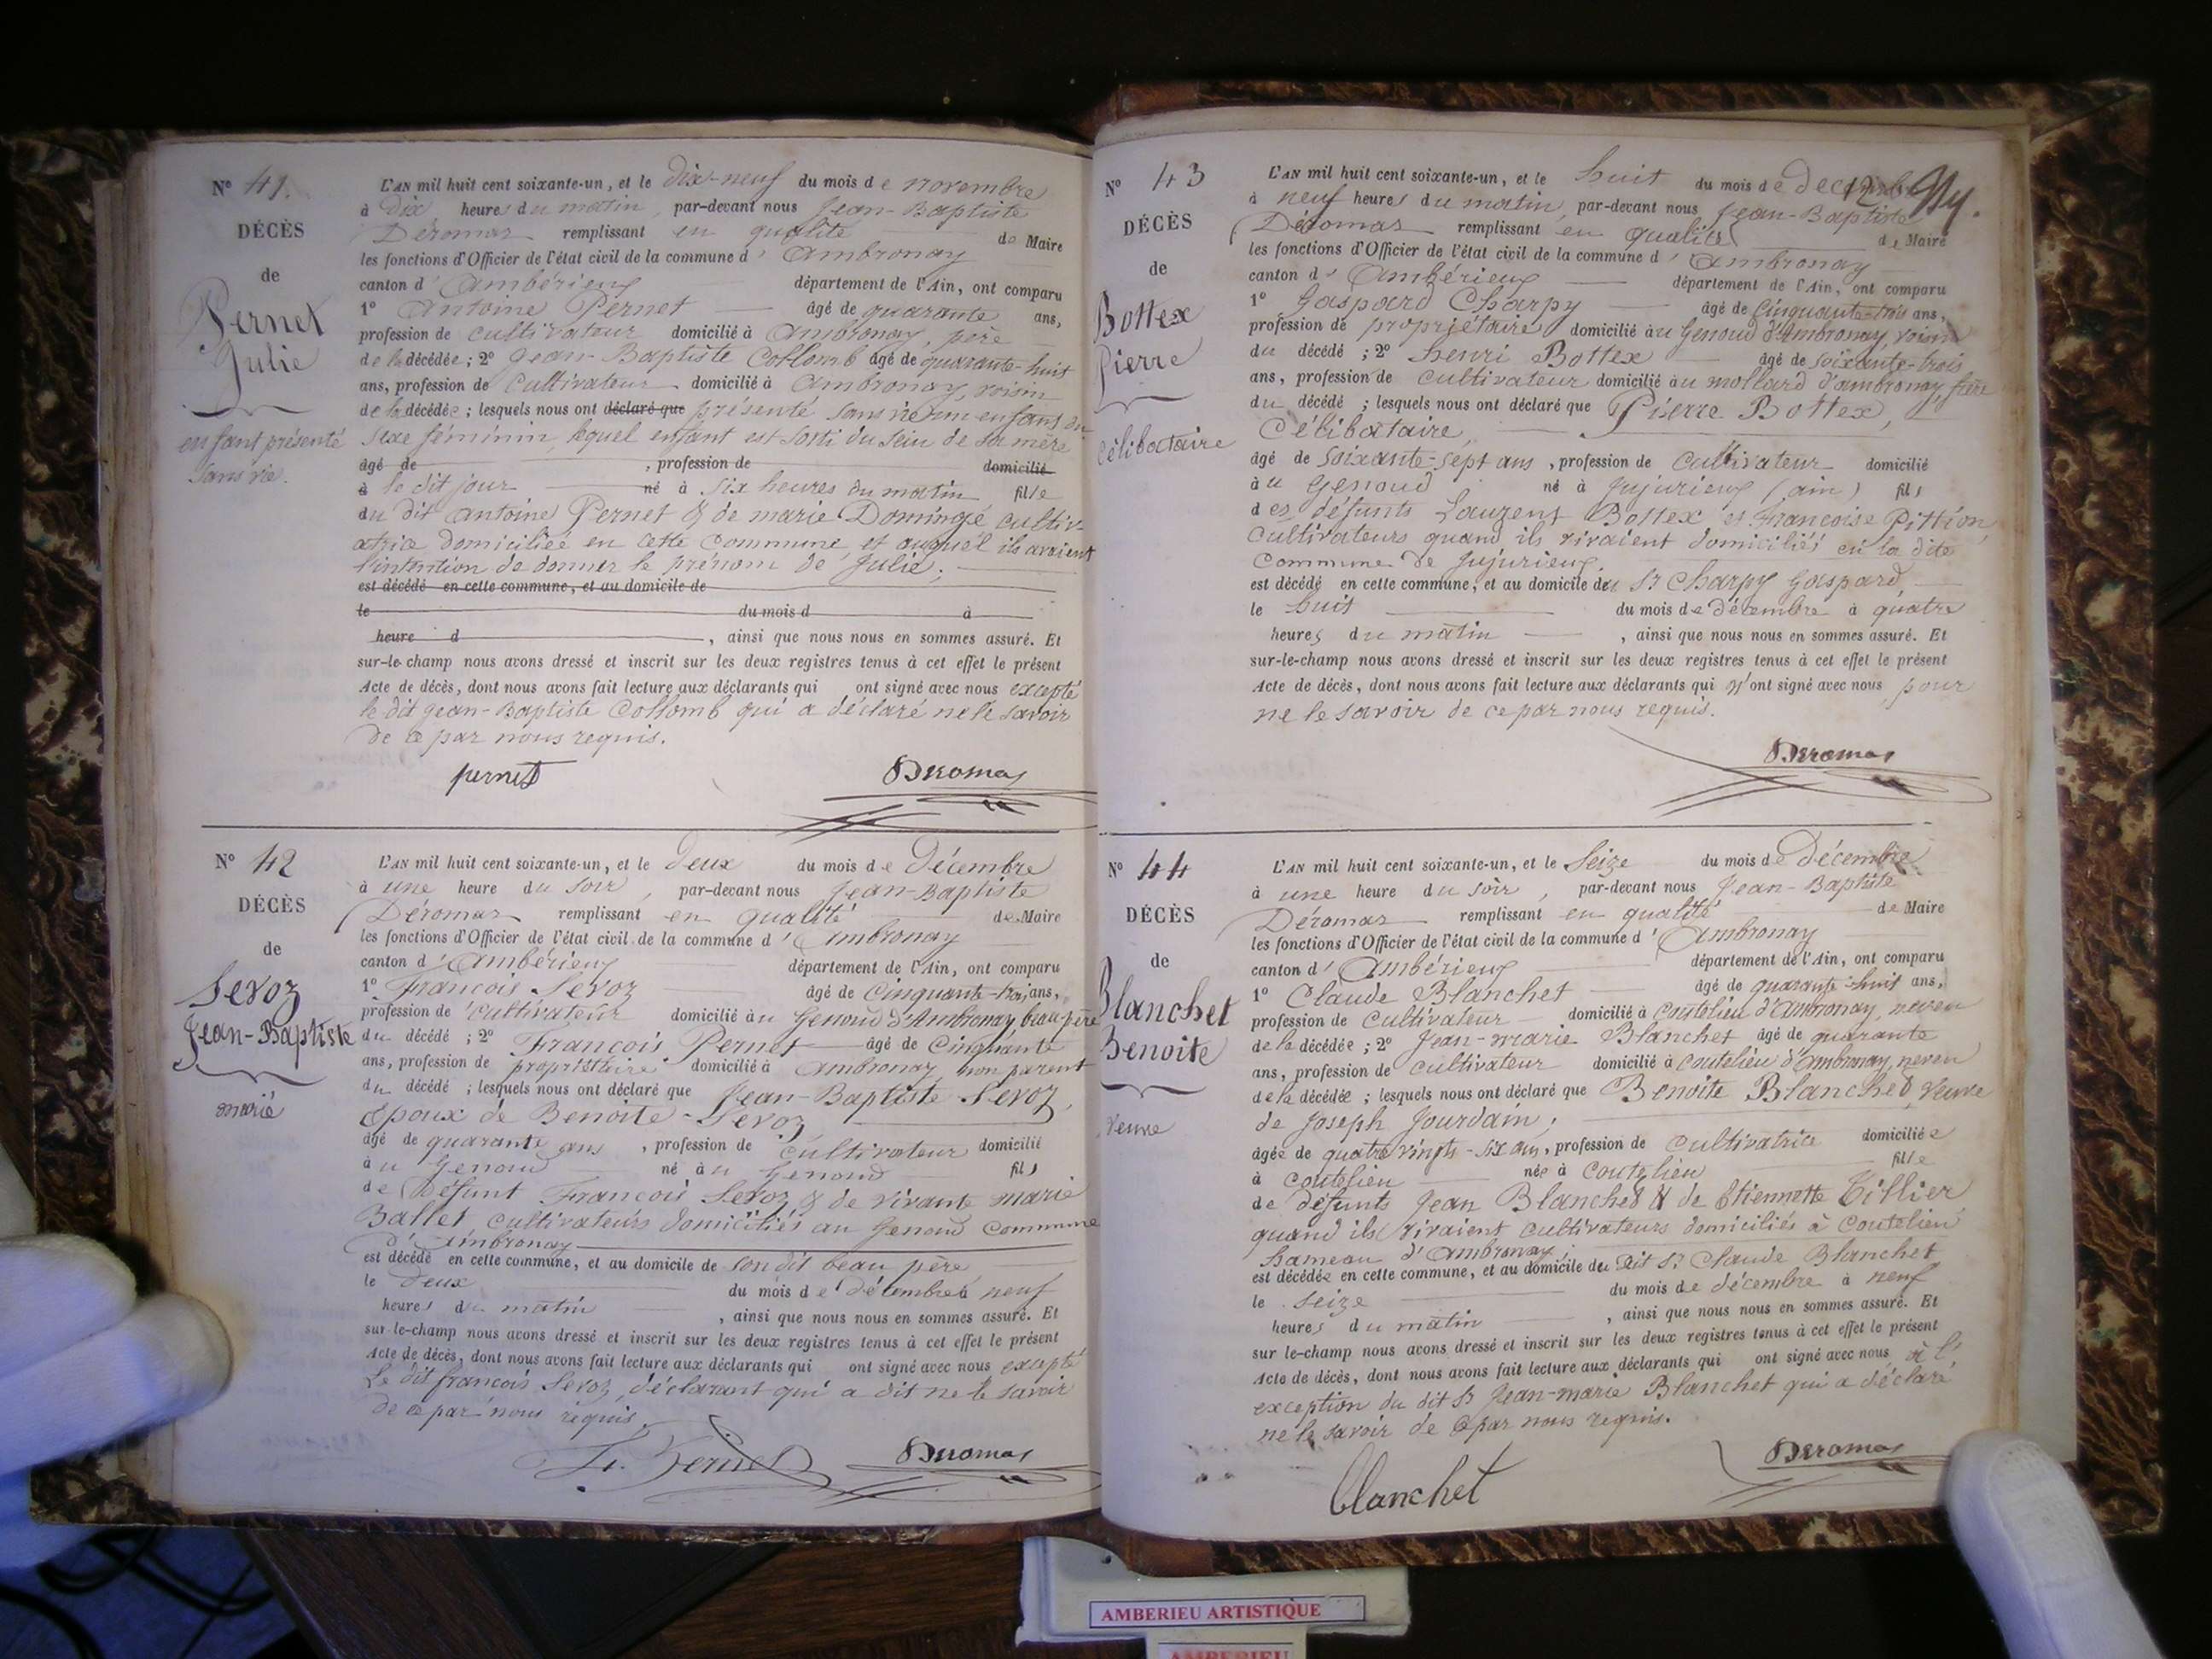 N° 41.
DÉCÈS
de
Pernet
Julie
enfant présenté
sans vie.
L'AN mil huit cent soixante-un, et le dix-neuf du mois de novembre
à dix heures du matin, par-devant nous Jean-Baptiste
Déromas remplissant en qualité de Maire
les fonctions d'Officier de l'état civil de la commune d'Ambronay
canton d'Ambérieux département de l'Ain, ont comparu
1° Antoine Pernet âgé de quarante ans,
profession de cultivateur domicilié à Ambronay, père
de la décédée ; 2° Jean-Baptiste Collomb âgé de quarante-huit
ans, profession de cultivateur domicilié à Ambronay, voisin
de la décédée ; lesquels nous ont déclaré que présenté sans vie un enfant du
sexe féminin, lequel enfant est sorti du sein de sa mère
âgé de , profession de domicilié
à le dit jour né à six heures du matin fille
du dit Antoine Pernet & de marie Domingé cultiv-
atrice domiciliée en cette commune, et auquel ils avaient
l'intention de donner le prénom de Julie ;
est décédé en cette commune, et au domicile de
le du mois d à
heure d , ainsi que nous nous en sommes assuré. Et
sur-le-champ nous avons dressé et inscrit sur les deux registres tenus à cet effet le présent
Acte de décès, dont nous avons fait lecture aux déclarants qui ont signé avec nous excepté
le dit Jean-Baptiste Collomb qui a déclaré ne le savoir
de ce par nous requis.
pernet Deromas
N° 42
DÉCÈS
de
Sevoz
Jean-Baptiste
marié
L'AN mil huit cent soixante-un, et le deux du mois de Décembre
à une heure du soir, par-devant nous Jean-Baptiste
Déromas remplissant en qualité de Maire
les fonctions d'Officier de l'état civil de la commune d'Ambronay
canton d'Ambérieux département de l'Ain, ont comparu
1° François Sevoz âgé de cinquante-trois ans,
profession de cultivateur domicilié au Genoud d'Ambronay beau-père
du décédé ; 2° François Pernet âgé de cinquante
ans, profession de propriétaire domicilié à Ambronay, non parent
du décédé ; lesquels nous ont déclaré que Jean-Baptiste Sevoz,
époux de Benoite Sevoz
âgé de quarante ans, profession de cultivateur domicilié
au Genoud né au Genoud fils
de Défunt François Sevoz & de vivante marie
Ballet, cultivateurs domiciliés au Genoud commune
d'Ambronay
est décédé en cette commune, et au domicile de son dit beau père
le deux du mois de décembre à neuf
heures du matin , ainsi que nous nous en sommes assuré. Et
sur-le-champ nous avons dressé et inscrit sur les deux registres tenus à cet effet le présent
Acte de décès, dont nous avons fait lecture aux déclarants qui ont signé avec nous excepté
Le dit françois Sevoz, déclarant qui a dit ne le savoir
de ce par nous requis.
Fr. Pernet Deromas
N° 43
DÉCÈS
de
Bottex
Pierre
Célibataire
L'AN mil huit cent soixante-un, et le huit du mois de decembre
à neuf heures du matin, par-devant nous Jean-Baptiste
Déromas remplissant en qualité de Maire
les fonctions d'Officier de l'état civil de la commune d'Ambronay
canton d'Ambérieux département de l'Ain, ont comparu
1° Gaspard Charpy âgé de cinquante-trois ans,
profession de propriétaire domicilié au Genoud d'Ambronay, voisin
du décédé ; 2° henri Bottex âgé de soixante-trois
ans, profession de cultivateur domicilié au mollard d'ambronay, frère
du décédé ; lesquels nous ont déclaré que Pierre Bottex,
Célibataire,
âgé de soixante-sept ans, profession de Cultivateur domicilié
au Genoud né à Jujurieux (ain) fils
des défunts Laurent Bottex et Francoise Pittion,
Cultivateurs quand ils vivaient domiciliés en la dite
commune de Jujurieux.
est décédé en cette commune, et au domicile du Sr Charpy Gaspard
le huit du mois de décembre à quatre
heures du matin , ainsi que nous nous en sommes assuré. Et
sur-le-champ nous avons dressé et inscrit sur les deux registres tenus à cet effet le présent
Acte de décès, dont nous avons fait lecture aux déclarants qui n'ont signé avec nous, pour
ne le savoir de ce par nous requis.
Deromas
N° 44
DÉCÈS
de
Blanchet
Benoite
veuve
L'AN mil huit cent soixante-un, et le Seize du mois de Décembre
à une heure du soir, par-devant nous Jean-Baptiste
Déromas remplissant en qualité de Maire
les fonctions d'Officier de l'état civil de la commune d'Ambronay
canton d'Ambérieux département de l'Ain, ont comparu
1° Claude Blanchet âgé de quarante-huit ans,
profession de Cultivateur domicilié à Coutelieu d'Ambronay, neveu
de la décédée ; 2° Jean-marie Blanchet âgé de quarante
ans, profession de cultivateur domicilié à Coutelieu d'Ambronay, neveu
de la décédée ; lesquels nous ont déclaré que Benoite Blanchet, veuve
de Joseph Jourdain ;
âgée de quatre vingts-six ans, profession de cultivatrice domiciliée
à coutelieu née à coutelieu fille
de défunts Jean Blanchet & de Etiennette Tillier
quand ils vivaient cultivateurs domiciliés à Coutelieu
hameau d'Ambronay
est décédée en cette commune, et au domicile du dit Sr Claude Blanchet
le seize du mois de décembre à neuf
heures du matin , ainsi que nous nous en sommes assuré. Et
sur le-champ nous avons dressé et inscrit sur les deux registres tenus à cet effet le présent
Acte de décès, dont nous avons fait lecture aux déclarants qui ont signé avec nous à l'
exception du dit Sr Jean-marie Blanchet qui a déclaré
ne le savoir de ce par nous requis.
Blanchet Deromas
AMBERIEU ARTISTIQUE
AMBERIEU